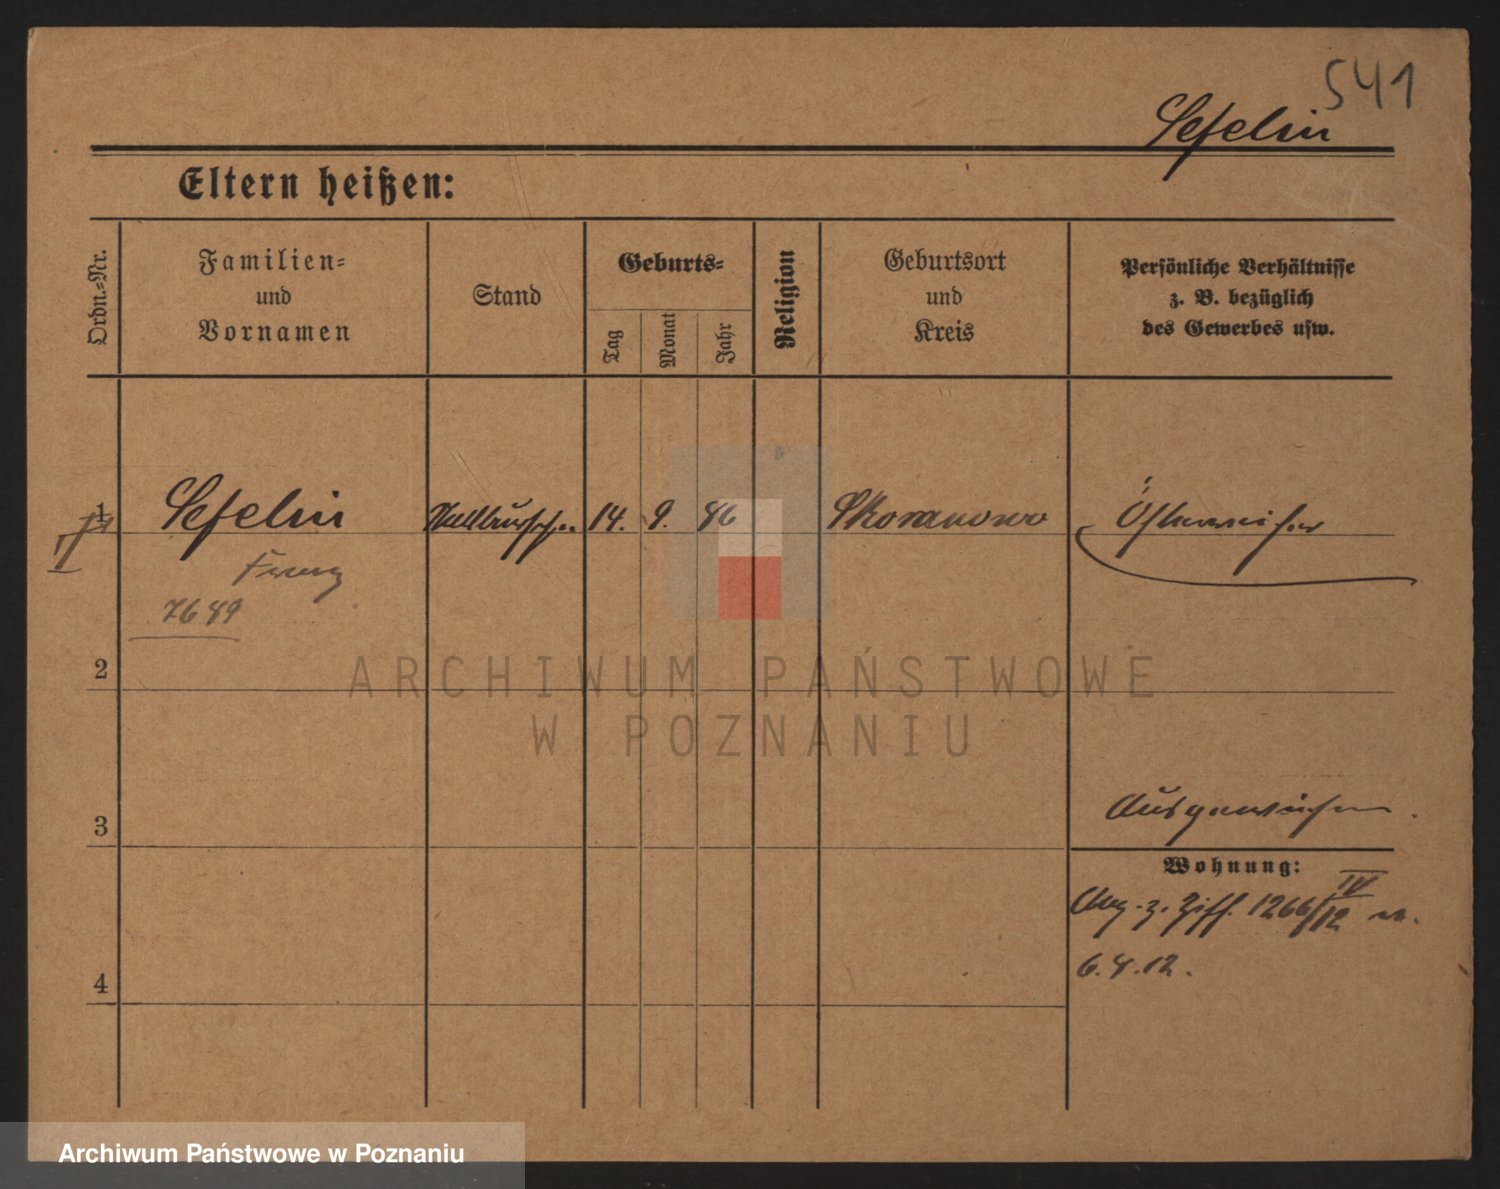 541
Sefelin
Eltern heißen:
Ordn.-Nr.
Familien-
und
Vornamen
Stand
Geburts-
Tag
Monat
Jahr
Religion
Geburtsort
und
Kreis
Persönliche Verhältnisse
z. B. bezüglich
des Gewerbes usw.
1
Sefelin
14. 9. 86
Skoranowo
Österreicher
Franz
7689
2
ARCHIWUM PAŃSTWOWE
W POZNANIU
Ausgewiesen.
3
Wohnung:
Ang. z. Ziff. 1266/12 IV
6.8.12.
4
Archiwum Państwowe w Poznaniu